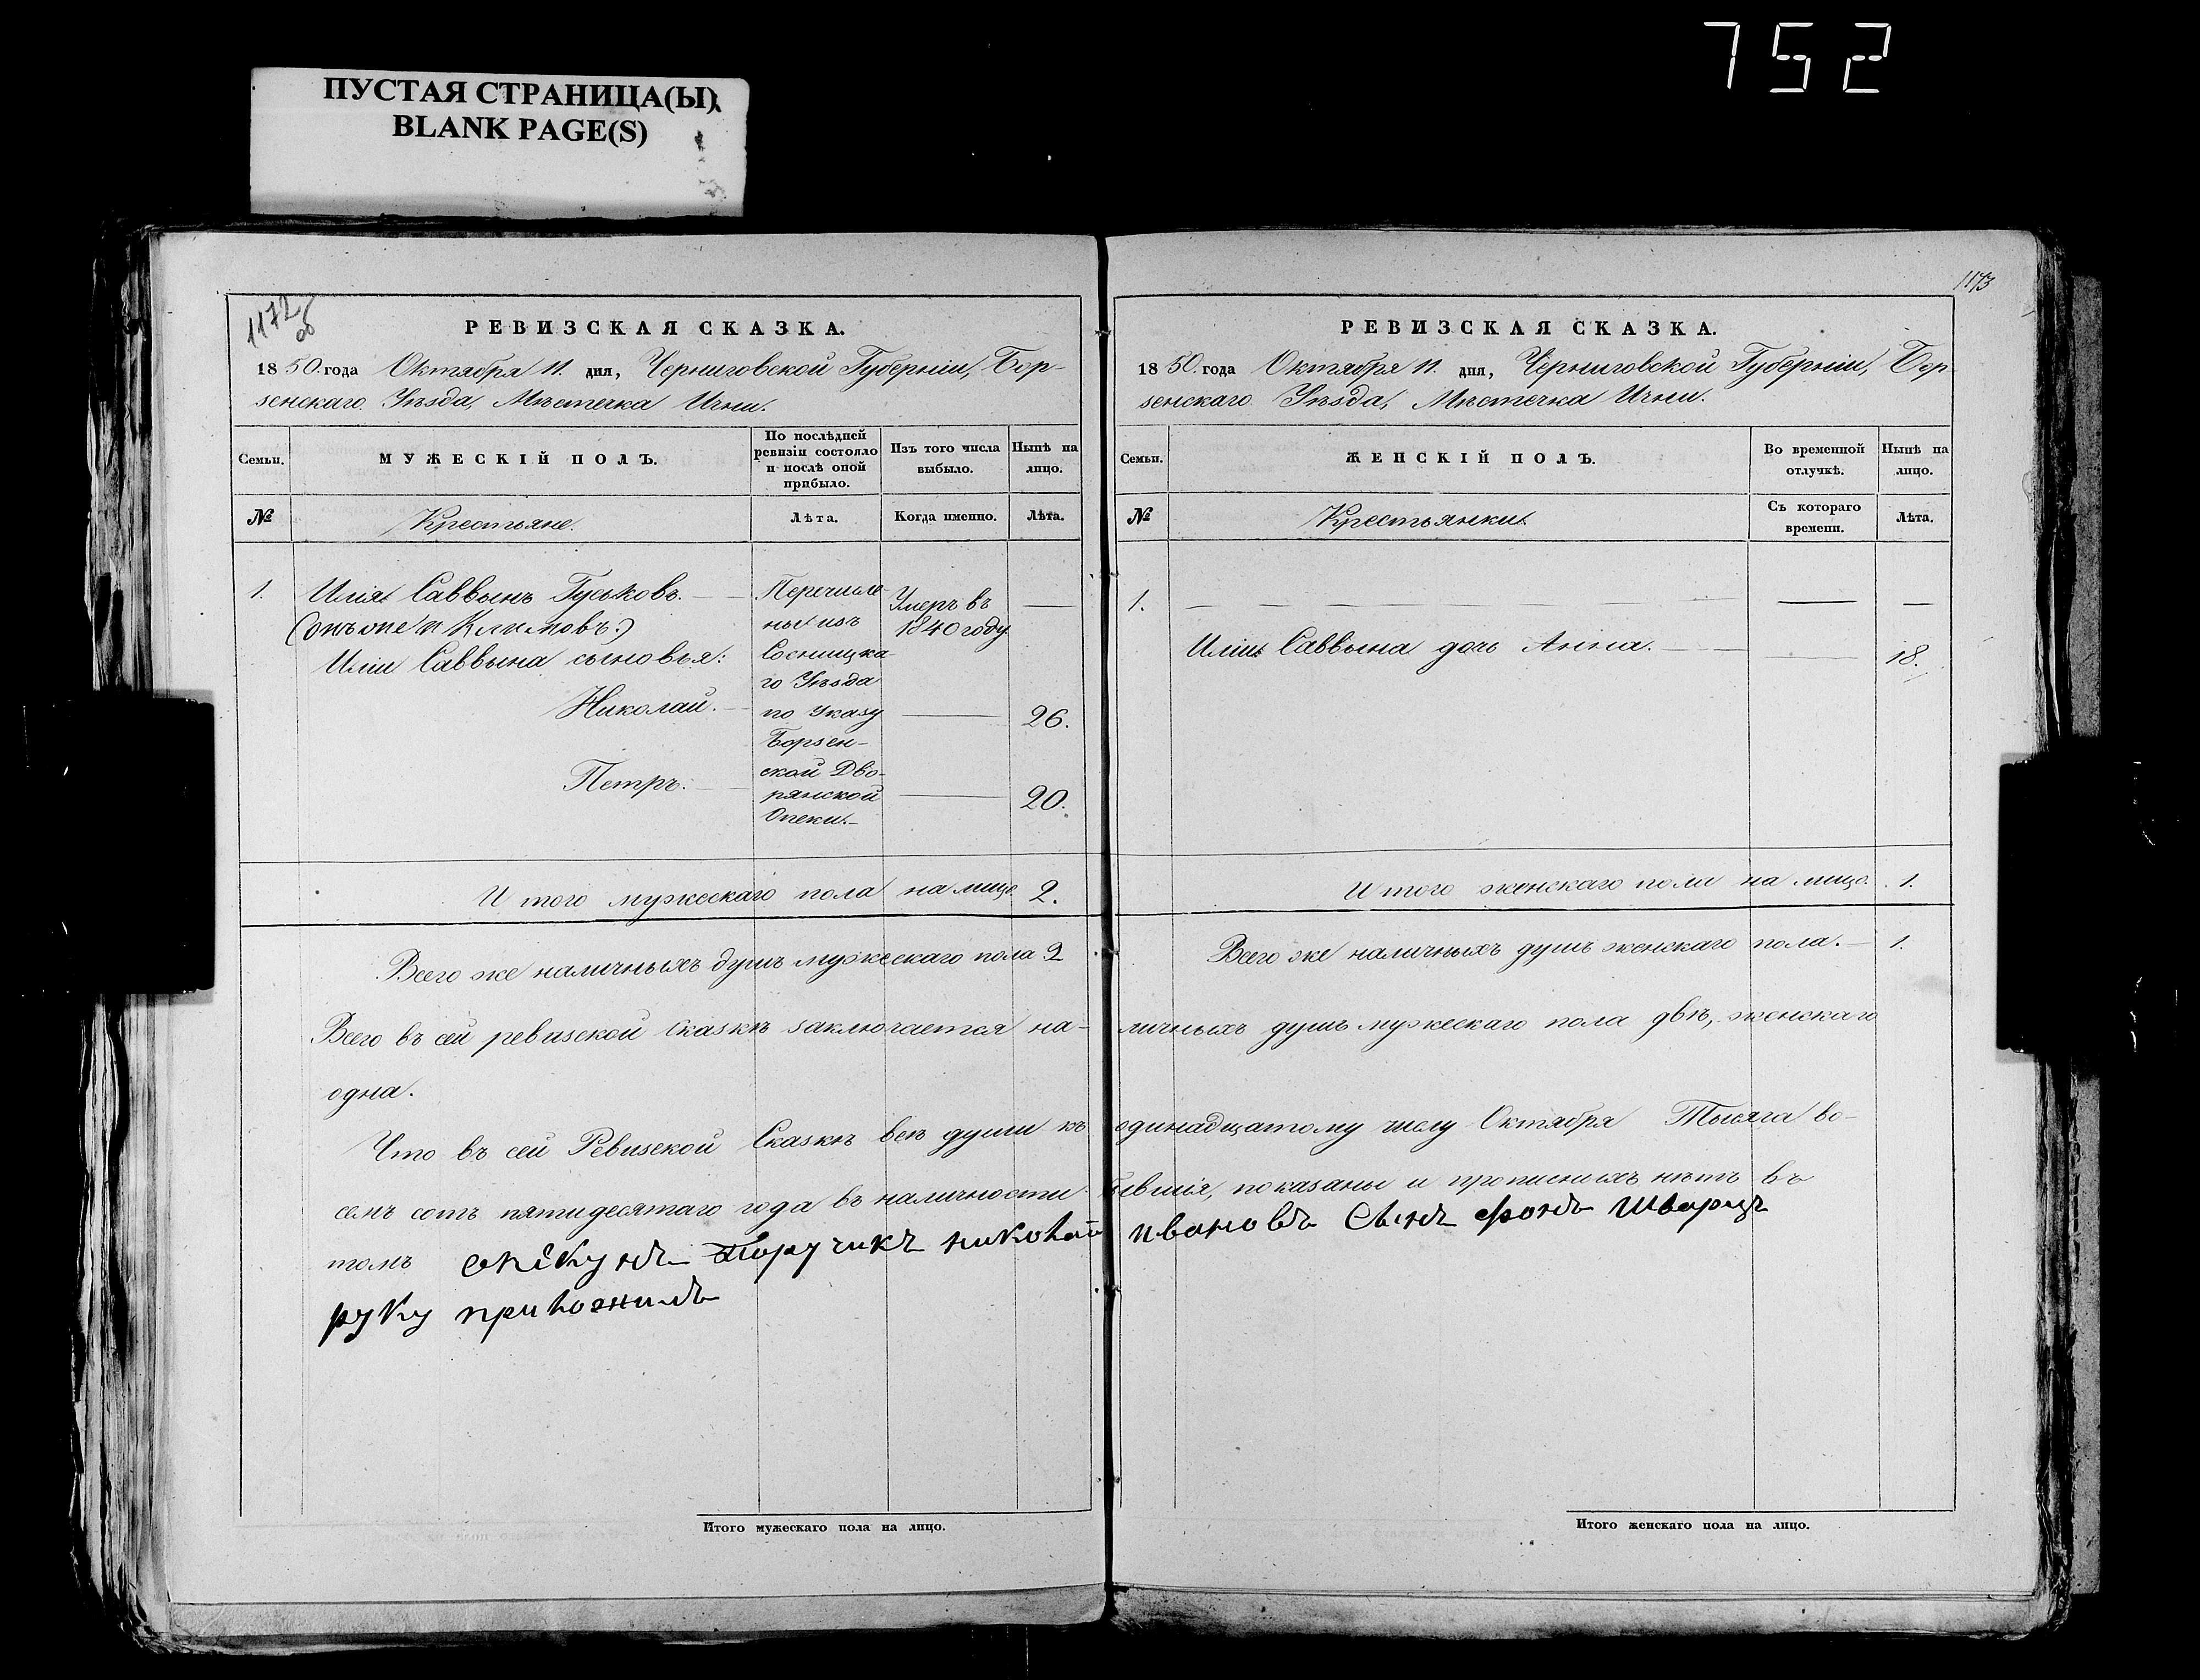 752
ПУСТАЯ СТРАНИЦА(Ы)
BLANK PAGE(S)
1172
об
РЕВИЗСКАЯ СКАЗКА.
1850. года Октября 11. дня, Черниговской Губерніи, Бор-
зенскаго Уѣзда, Мѣстечка Ични.
Семьи.
МУЖЕСКІЙ ПОЛЪ.
По послѣдней
ревизіи состояло
и послѣ оной
прибыло.
Изъ того числа
выбыло.
Нынѣ на
лицо.
№
Крестьяне.
Лѣта.
Когда именно.
Лѣта.
1.
Илія Саввинъ Гуськовъ. —
Климовъ:)
Иліи Саввина сыновья:
Николай. —
Петръ. —
Перечисле-
ны изъ
Сосницка-
го Уѣзда
по Указу
Борзен-
ской Дво-
рянской
Опеки. —
Умеръ въ
1840 году
—
—
—
26.
20.
И того мужескаго пола на лице 2.
Всего же наличныхъ душъ мужескаго пола 2
1173
РЕВИЗСКАЯ СКАЗКА.
1850. года Октября 11. дня, Черниговской Губерніи, Бор-
зенскаго Уѣзда, Мѣстечка Ични.
Семьи.
ЖЕНСКІЙ ПОЛЪ.
Во временной
отлучкѣ.
Нынѣ на
лицо.
№
Крестьянки.
Съ котораго
времени.
Лѣта.
1. — — — — — — — —
Иліи Саввина дочь Анна. — — 18.
И того женскаго пола на лице. 1.
Всего же наличныхъ душъ женскаго пола. — 1.
Всего въ сей ревизской Сказкѣ заключается на- личныхъ душъ мужескаго пола двѣ, женскаго
одна.
Что въ сей Ревизской Сказкѣ всѣ души къ одинадцатому числу Октября Тысяча во-
семъ сотъ пятидесятаго года въ наличности бывшія, показаны и прописныхъ нѣтъ въ
томъ опекунъ Поручикъ николай ивановъ Сынъ фонъ Шварцъ
руку приложилъ
Итого мужескаго пола на лицо.
Итого женскаго пола на лицо.